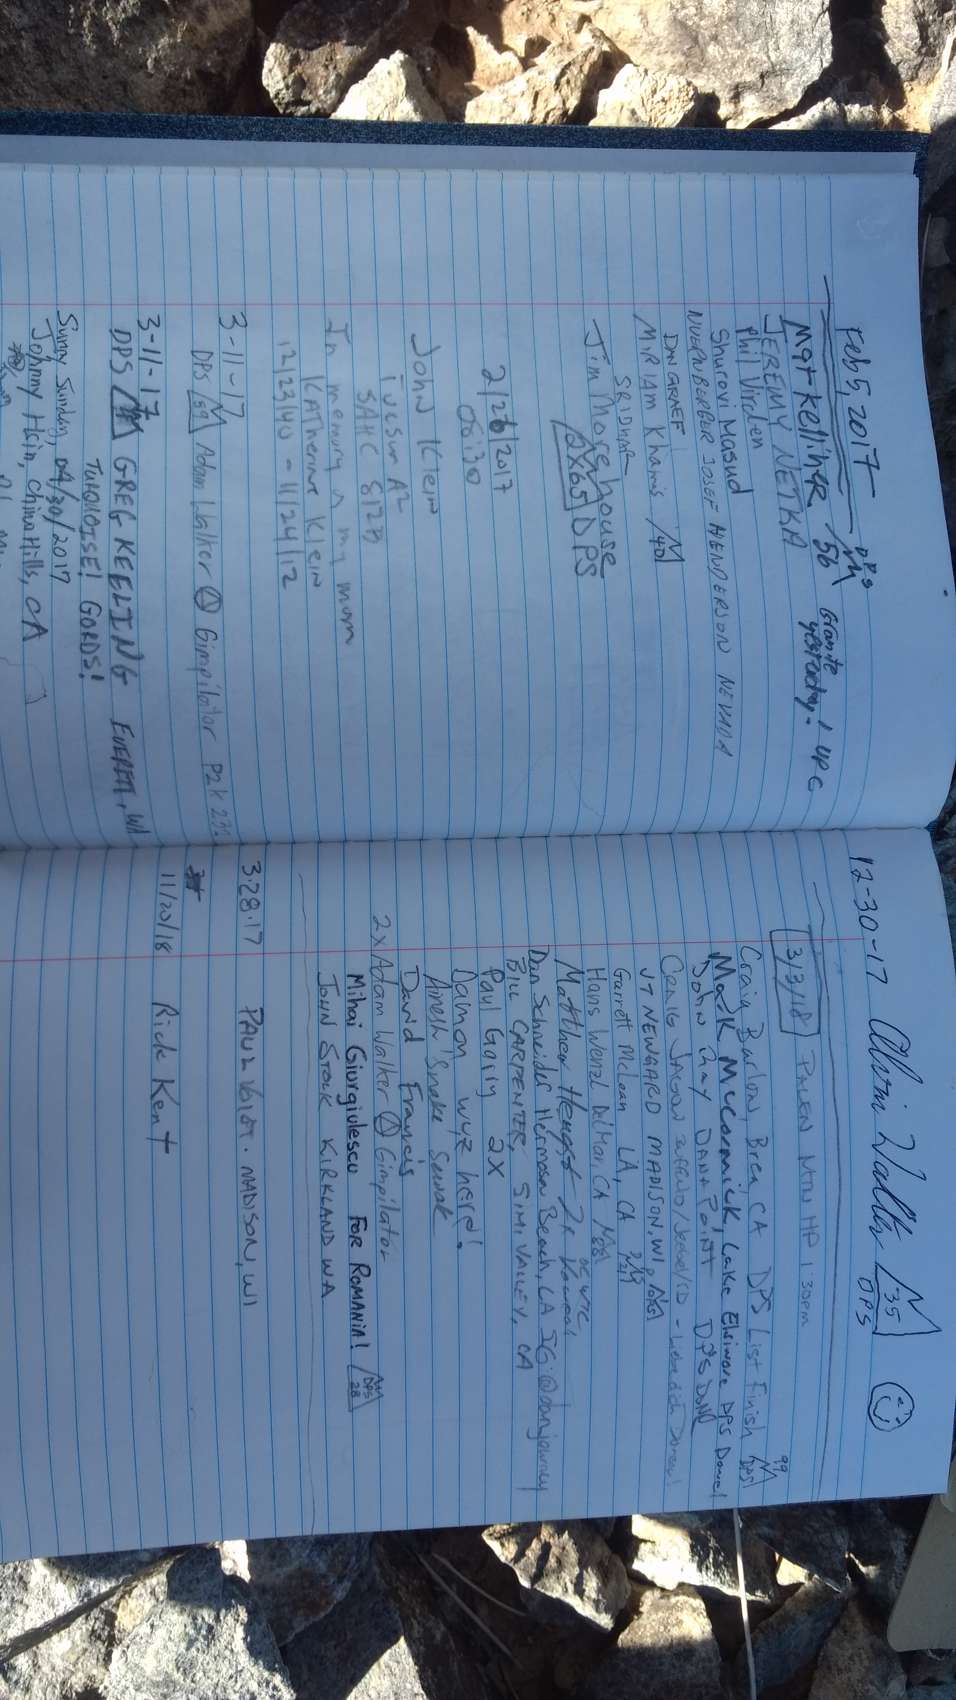 Feb 5, 2017 DPS
Matt Kelliher 56 Granite yesterday! UPC
JEREMY NETKA
Phil Virden
Shurovi Masud
NUERNBERGER JOSEF HENDERSON NEVADA
DAN GRAEF
MiRiAm Khamis 40
SRIDHAR
Jim Morehouse
2X65 DPS
2/26/2017
06:30
John Klein
Tucson AZ
SAHC
In memory of my mom
KATherine Klein
12/23/40 - 11/24/12
3-11-17
DPS 59 Adam Walker Gimpilator P2K
3-11-17
DPS GREG KEELING EVERETT, WA
TURQUOISE! GORDS!
Sunny Sunday, 04/30/2017
Johnny Hsin, Chino Hills, CA
12-30-17 35
DPS
3/3/18 PALEN MTN HP 1:30pm
Craig Barlow, Brea, CA DPS List Finish 99 DPS
Mark McCormick, Lake Elsinore DPS Done!
John Ray DANA Point DPS DONE
CRAIG
JT NEWGARD MADISON, WI
Garrett McLean LA, CA
Hans Wenzl Del Mar, CA
Matthew Hengst 2x
Dan Schneider Hermosa Beach, CA IG: @danjourney
Bill CARPENTER, SIMI VALLEY, CA
Paul Garry 2X
Damon wyz here!
"Snake"
David Francis
2x Adam Walker Gimpilator
Mihai Giurgiulescu FOR ROMANIA! DPS 28
JOHN STOCK KIRKLAND WA
3.28.17 PAUL MADISON, WI
11/20/18 Rick Kent